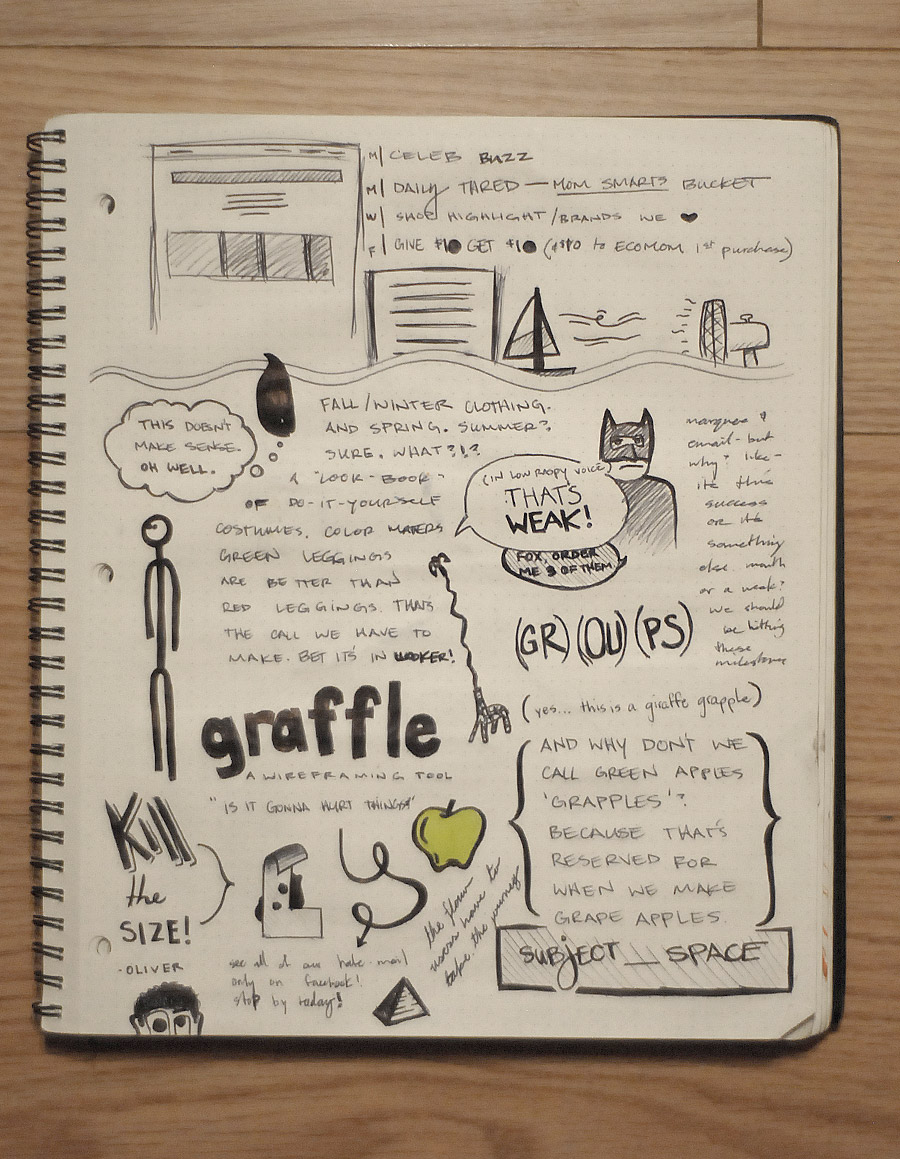 M| CELEB BUZZ
M| DAILY THRED — MOM SMARTS BUCKET
W| SHOE HIGHLIGHT / BRANDS WE ♥
F| GIVE $10 GET $10 ($10 to ECOMOM 1st purchase)
THIS DOESN'T
MAKE SENSE.
OH WELL.
FALL/WINTER CLOTHING.
AND SPRING. SUMMER?
SURE. WHAT?!?
A "LOOK-BOOK"
OF DO-IT-YOURSELF
COSTUMES. COLOR MATERS
GREEN LEGGINGS
ARE BETTER THAN
RED LEGGINGS. THAT'S
THE CALL WE HAVE TO
MAKE. BET IT'S IN
(IN LOW RASPY VOICE)
THAT'S
WEAK!
FOX, ORDER
ME 3 OF THEM
marquee &
email - but
why? like -
its this
success
or its
something
else. month
or a weak?
we should
be hitting
these
milestones
(GR) (OU) (PS)
graffle
A WIREFRAMING TOOL
(yes... this is a giraffe grapple)
AND WHY DON'T WE
CALL GREEN APPLES
'GRAPPLES'?
BECAUSE THAT'S
RESERVED FOR
WHEN WE MAKE
GRAPE APPLES.
"IS IT GONNA HURT THINGS"
Kill
the
SIZE!
-OLIVER
see all of our hate-mail
only on facebook!
stop by today!
the flow
worm have to
take the journey
SUBJECT __ SPACE